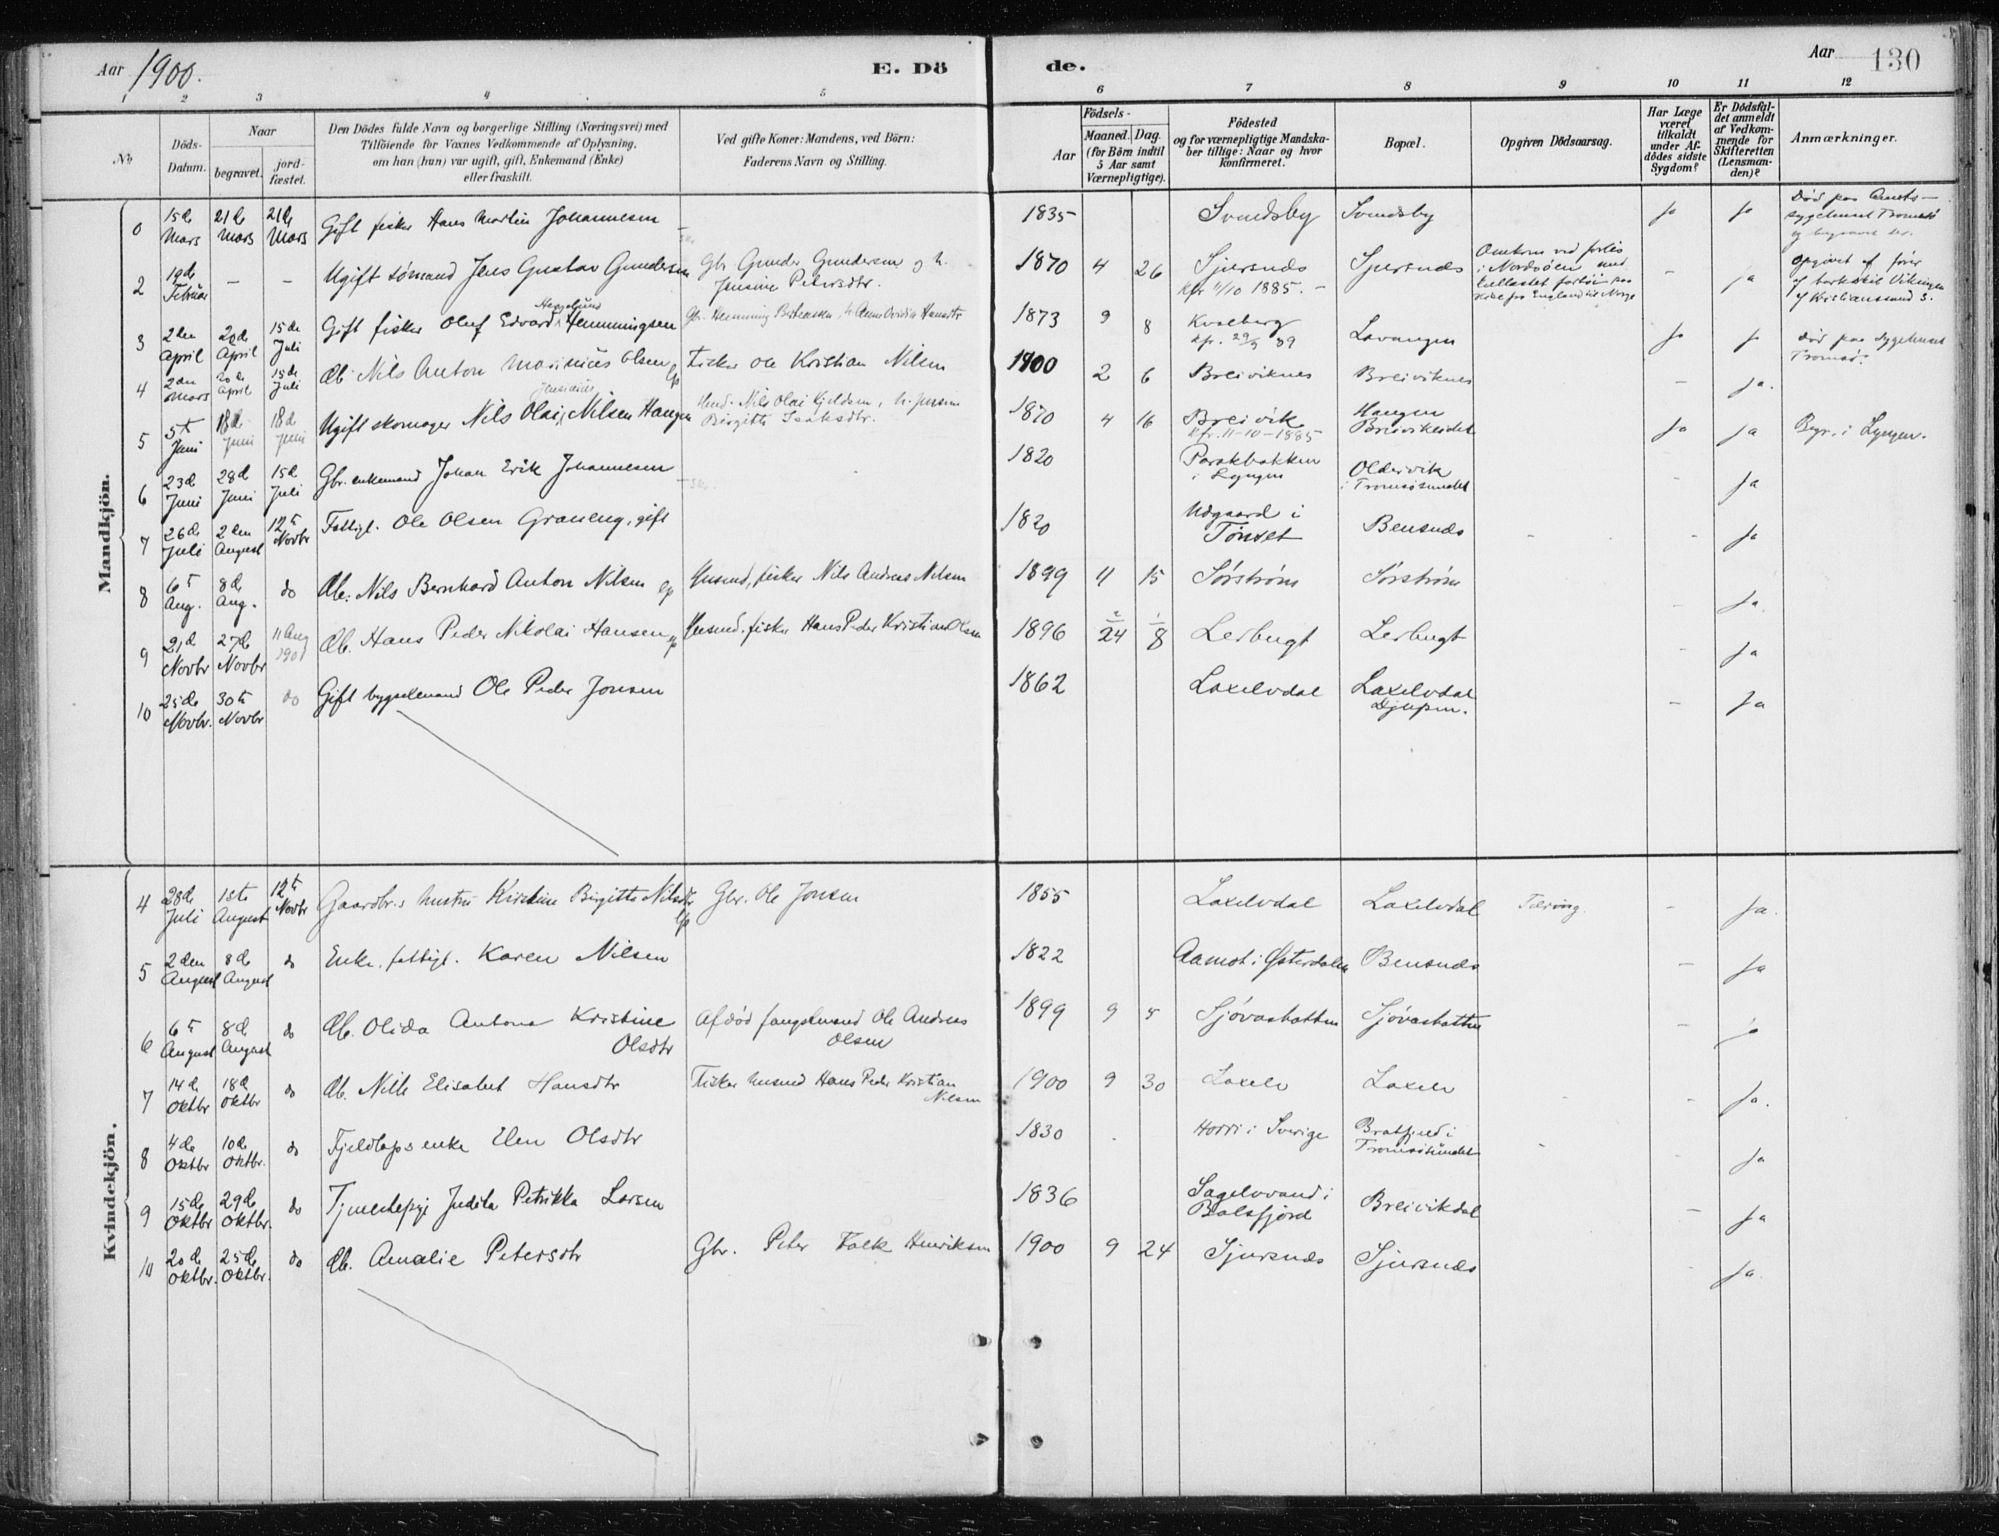 Aar 1900. E. Dö de. Aar 130
1 2 3 4 5 6 7 8 9 10 11 12
No
Döds-Datum.
Naar
begravet. jordfæstet.
Den Dödes fulde Navn og borgerlige Stilling (Næringsvei) med
Tilföiende for Voxnes Vedkommende af Oplysning,
om han (hun) var ugift, gift, Enkemand (Enke)
eller fraskilt.
Ved gifte Koner: Mandens, ved Börn:
Faderens Navn og Stilling.
Födsels-
Aar
Maaned. Dag.
(for Börn indtil
5 Aar samt
Værnepligtige).
Födested
og for værnepligtige Mandskaber
tillige: Naar og hvor
konfirmeret.
Bopæl.
Opgiven Dödsaarsag.
Har Læge
været
tilkaldt
under Afdödes
sidste
Sygdom?
Er Dödsfaldet
anmeldt
af Vedkommende
for
Skifteretten
(Lensmanden)?
Anmærkninger.
Mandkjön.
15de Mars 21de Mars 21de Mars Gift fisker Hans Martin Johannesen 1835 Svendsby Svendsby Ja Ja Död paa Amts-
sygehuset Tromsö
og begravet der.
2 19de Februar - - Ugift sömand Jens Gustav Gundersen Gbr Gunder Gundersen og h.
Jensine Petersdtr. 1870 4 26 Sjursnes
kfr 11/10 1885. - Sjursnes Omkom ved forlis
i Nordsöen med
ballastet fartöi paa
reise fra England til Norge - ja Opgivet af förer
af barkskib Vikingen
af Kristianssund S.
3 2den April 20de April 15de Juli Gift fisker Oluf Edvard Heggelund Hemmingsen Gbr. Hemming h. Anne Hansdtr 1873 9 8 Kvalberg
kfr. 29/9 89 Lavangen Ja Ja död paa Sygehuset
Tromsö
4 2den Mars 20de April 15de Juli Db. Nils Anton Marinius Olsen Fisker Ole Kristian Nilsen 1900 2 6 Breiviknes Breiviknes - Ja.
5 5te Juni 18de Juni 18de Juni Ugift skomager Nils Olai Jensenius Nilsen Haugen Husmd. Nils Olai Kjeldsen, h. Jensine
Birgitte Isaksdtr. 1870 4 16 Breivik
kfr. 11-10-1885 Haugen
Breivikeidet Ja Ja Begr. i Lyngen.
6 23de Juni 28de Juni 15de Juli Gbr. enkemand Johan Erik Johannesen 1820 Parakbakken
i Lyngen Oldervik
i Tromsösundet - Ja
7 26de Juli 2den August 12te Novbr Fattigl. Ole Olsen Graneng, gift 1820 Udgaard i
Tönset Bensnes - - Ja
8 6te Aug. 8de Aug. do Db. Nils Bernhard Anton Nilsen Husmd, fisker Nils Andreas Nilsen 1899 11 15 Sörström Sörström - Ja.
9 21de Novbr 27de Novbr 11 Aug 1901 Db. Hans Peder Nikolai Hansen Husmd. fisker Hans Peder Kristian Olsen 1896 2/24 1/8 Lerbugt Lerbugt - Ja
10 25de Novbr. 30te Novbr do Gift bygselmand Ole Peder Jonsen 1862 Laxelvdal Laxelvdal
Djupen. - Ja
Kvindekjön.
4 28de Juli 1ste August 12te Novbr Gaardbr.s hustru Kirstine Birgitte Nilsdtr Gbr. Ole Jonsen 1855 Laxelvdal Laxelvdal Tæring. - Ja.
5 2den August 8de August do Enke, fattigl. Karen Nilsen 1822 Aamot i Österdalen Bensnes - Ja
6 6te August 8de August do Db. Olida Antona Kristine
Olsdtr Afdöd fangstmand Ole Andreas
Olsen 1899 9 5 Sjövashatten Sjövashatten - ja
7 14de Oktbr 18de Oktbr do Db. Nille Elisabet Hansdtr Fisker husmd Hans Peder Kristian
Nilsen 1900 9 30 Laxelv Laxelv - - Ja.
8 4de Oktbr 10de Oktbr. do Fjeldlaps enke Elen Olsdtr 1830 i Sverige Bratfjeld i
Tromsösundet - Ja
9 15de Oktbr 29de Oktbr. do Tjenestepige Judita Petrikka Larsen 1836 Sagelvvand i
Balsfjord Breivikdal - Ja
10 20de Oktbr. 25de Oktbr. do Db. Amalie Petersdtr Gbr. Peter Falk Henriksen 1900 9 24 Sjursnes Sjursnes - Ja.